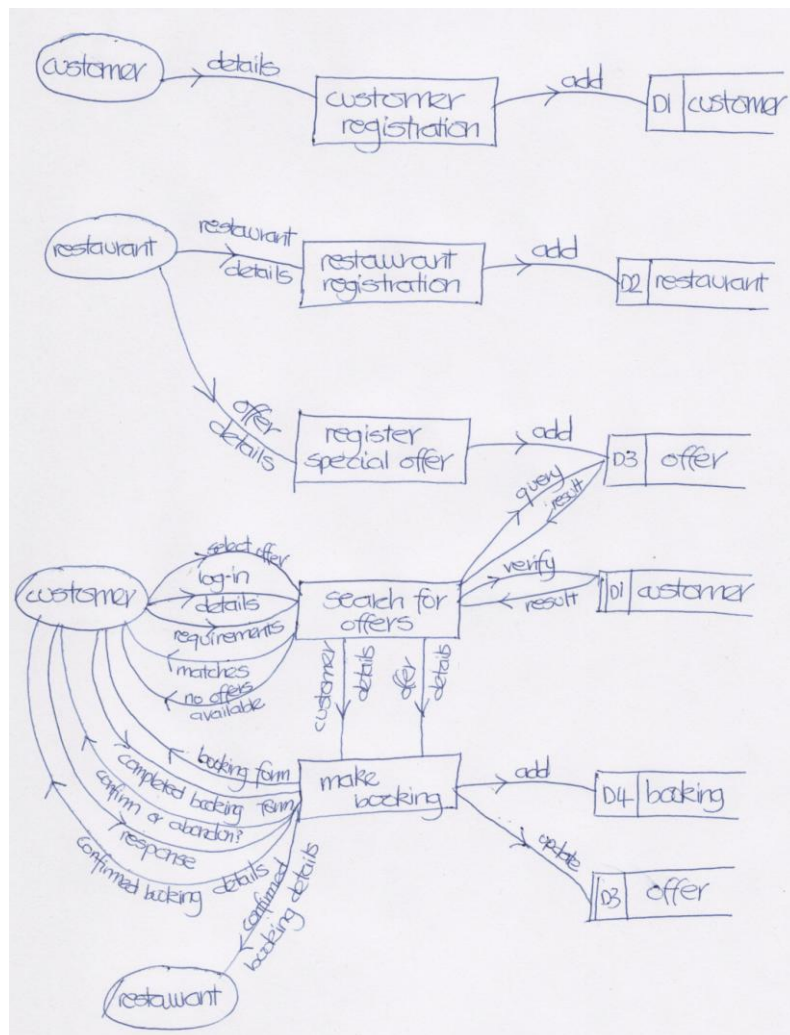 customer
details
customer
registration
add
D1 customer
restaurant
restaurant
details
restaurant
registration
add
D2 restaurant
offer
details
register
special offer
add
D3 offer
query
result
customer
select offer
log-in
details
requirements
matches
no offers
available
search for
offers
verify
result
D1 customer
customer
details
offer
details
booking form
completed booking form
confirm or abandon?
response
confirmed booking details
make
booking
add
D4 booking
update
D3 offer
confirmed
booking details
restaurant